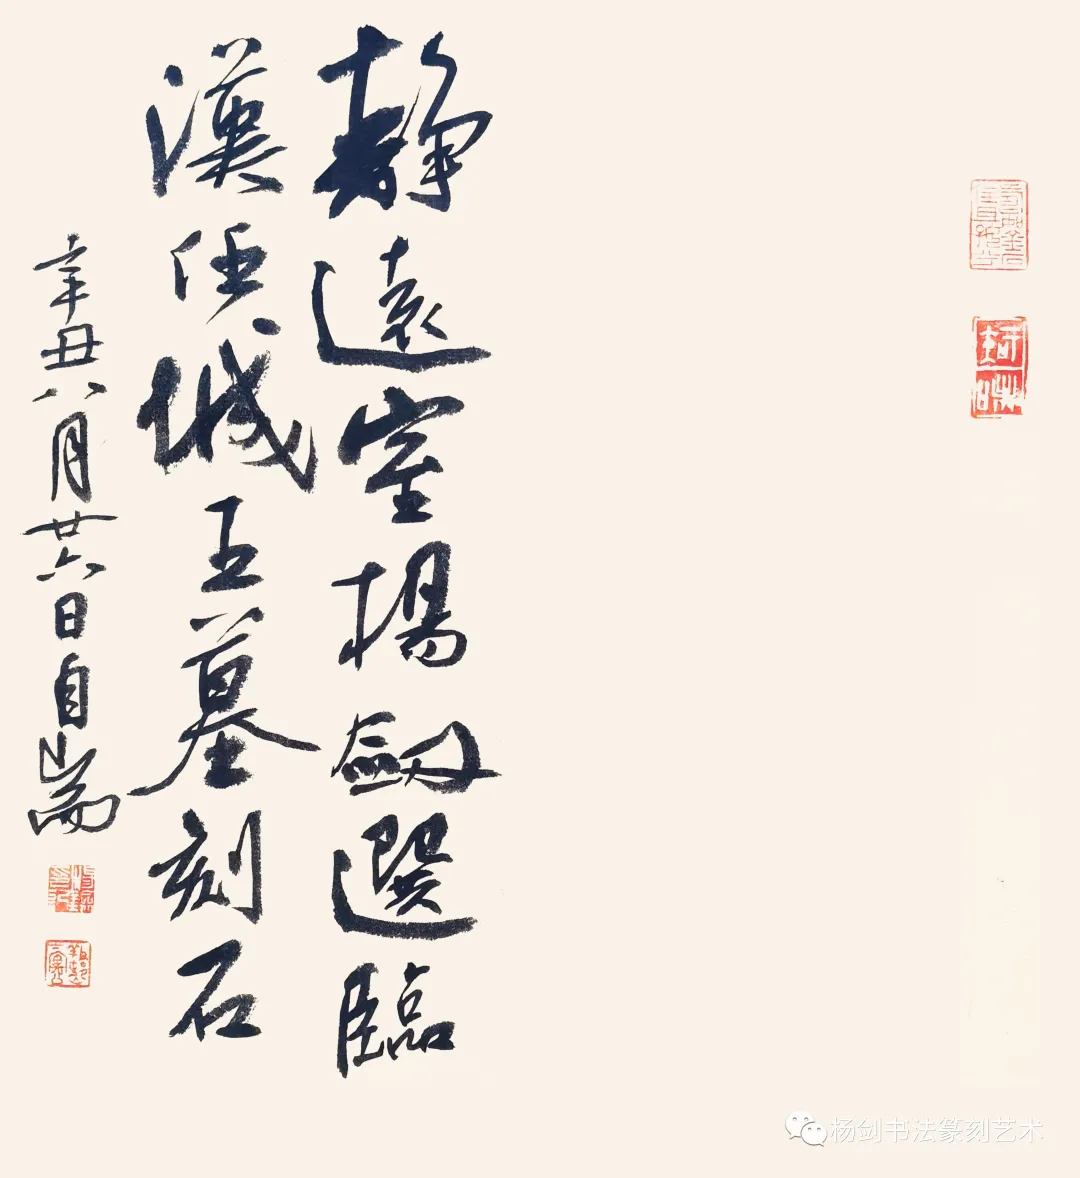 靜遠室楊劔選臨
漢任城王墓刻石
辛丑八月廿六日自耑
杨剑书法篆刻艺术